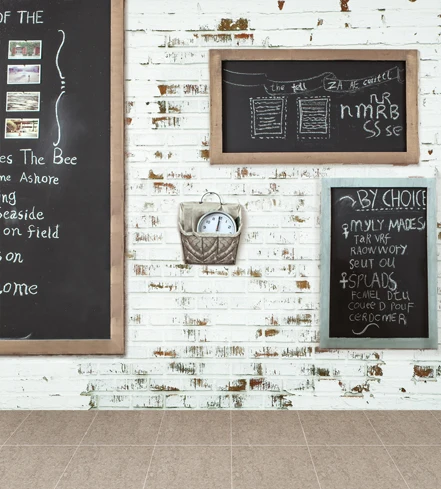 OF THE
es The Bee
me Ashore
ng
easide
on field
on
ome
the
nMRB
SS se
BY CHOICE
MYLY MADES
TaR VRF
RAOWWORY
SEUT OU
SPLADS
FCMEL DEU
COUCE D POUF
CERDEMER